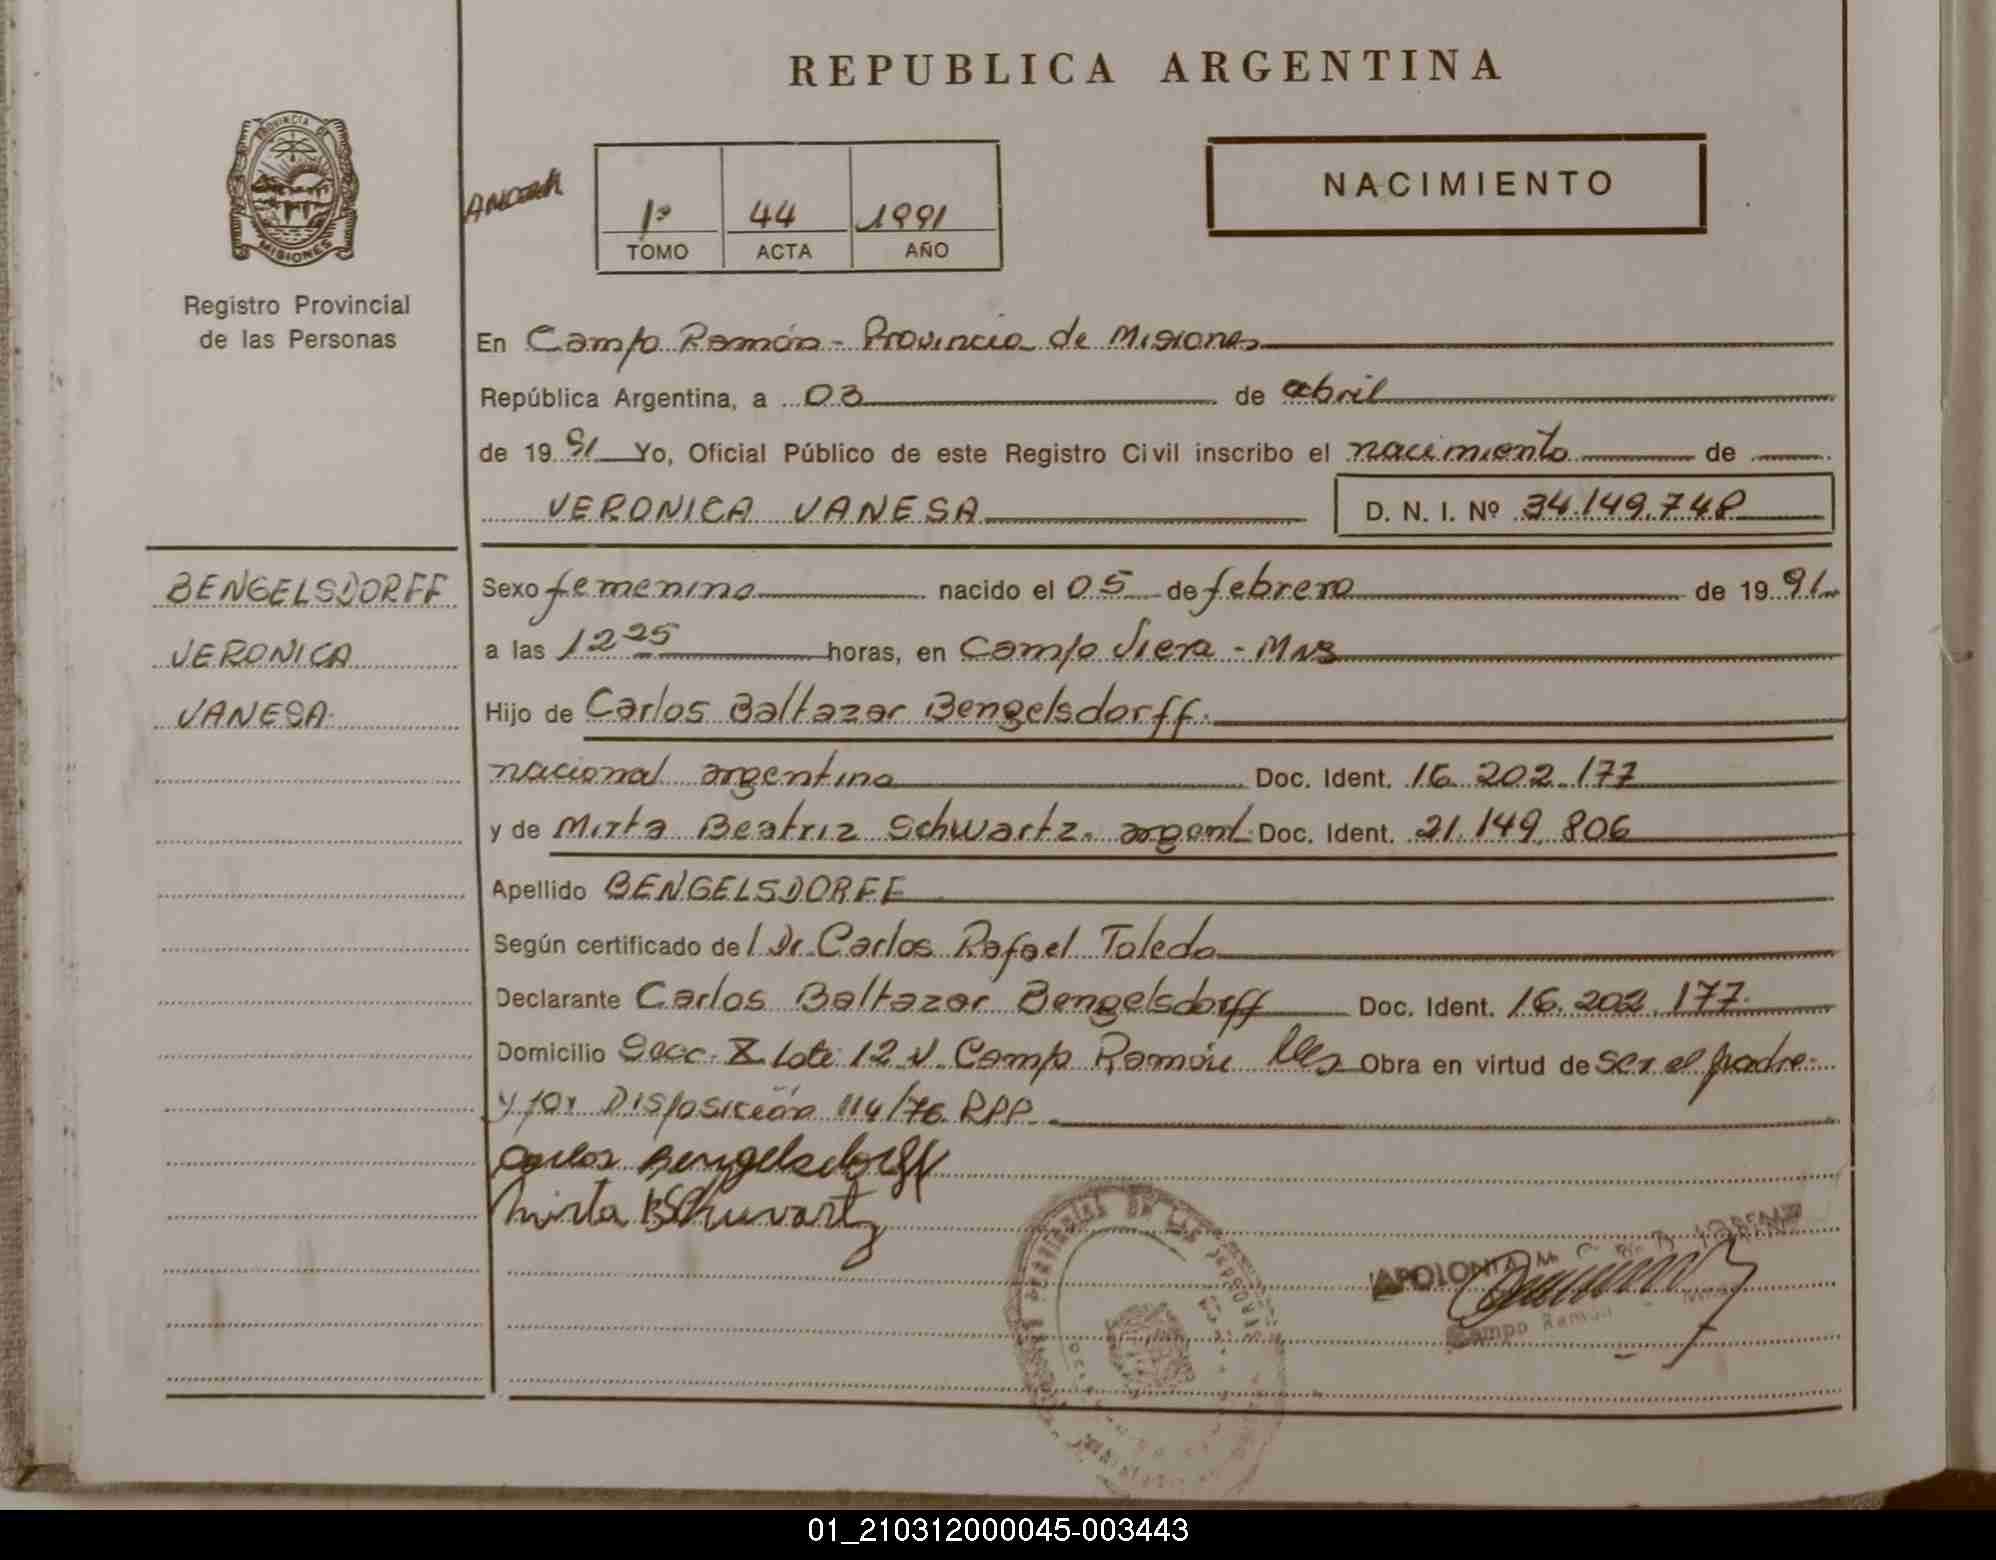 REPUBLICA ARGENTINA
PROVINCIA DE
MISIONES
Registro Provincial
de las Personas
1º 44 1991
TOMO ACTA AÑO
NACIMIENTO
En Campo Ramón - Provincia de Misiones
República Argentina, a 03 de abril
de 19 91 Yo, Oficial Público de este Registro Civil inscribo el nacimiento de
VERONICA VANESA D. N. I. Nº 34.149.748
BENGELSDORFF
VERONICA
VANESA
Sexo femenino nacido el 05 de febrero de 19 91
a las 12 25 horas, en Campo Viera - Mns
Hijo de Carlos Baltazar Bengelsdorff
nacional argentino Doc. Ident. 16.202.177
y de Mirta Beatriz Schwartz. argent. Doc. Ident. 21.149.806
Apellido BENGELSDORFF
Según certificado del Dr. Carlos Rafael Toledo
Declarante Carlos Baltazar Bengelsdorff Doc. Ident. 16.202.177
Domicilio Secc. Lote 12 Campo Ramón Obra en virtud de ser el padre
y por Disposición 114/76 RPP
Carlos Bengelsdorff
Mirta B Schwartz
APOLONIA M.
Campo Ramón
01_210312000045-003443